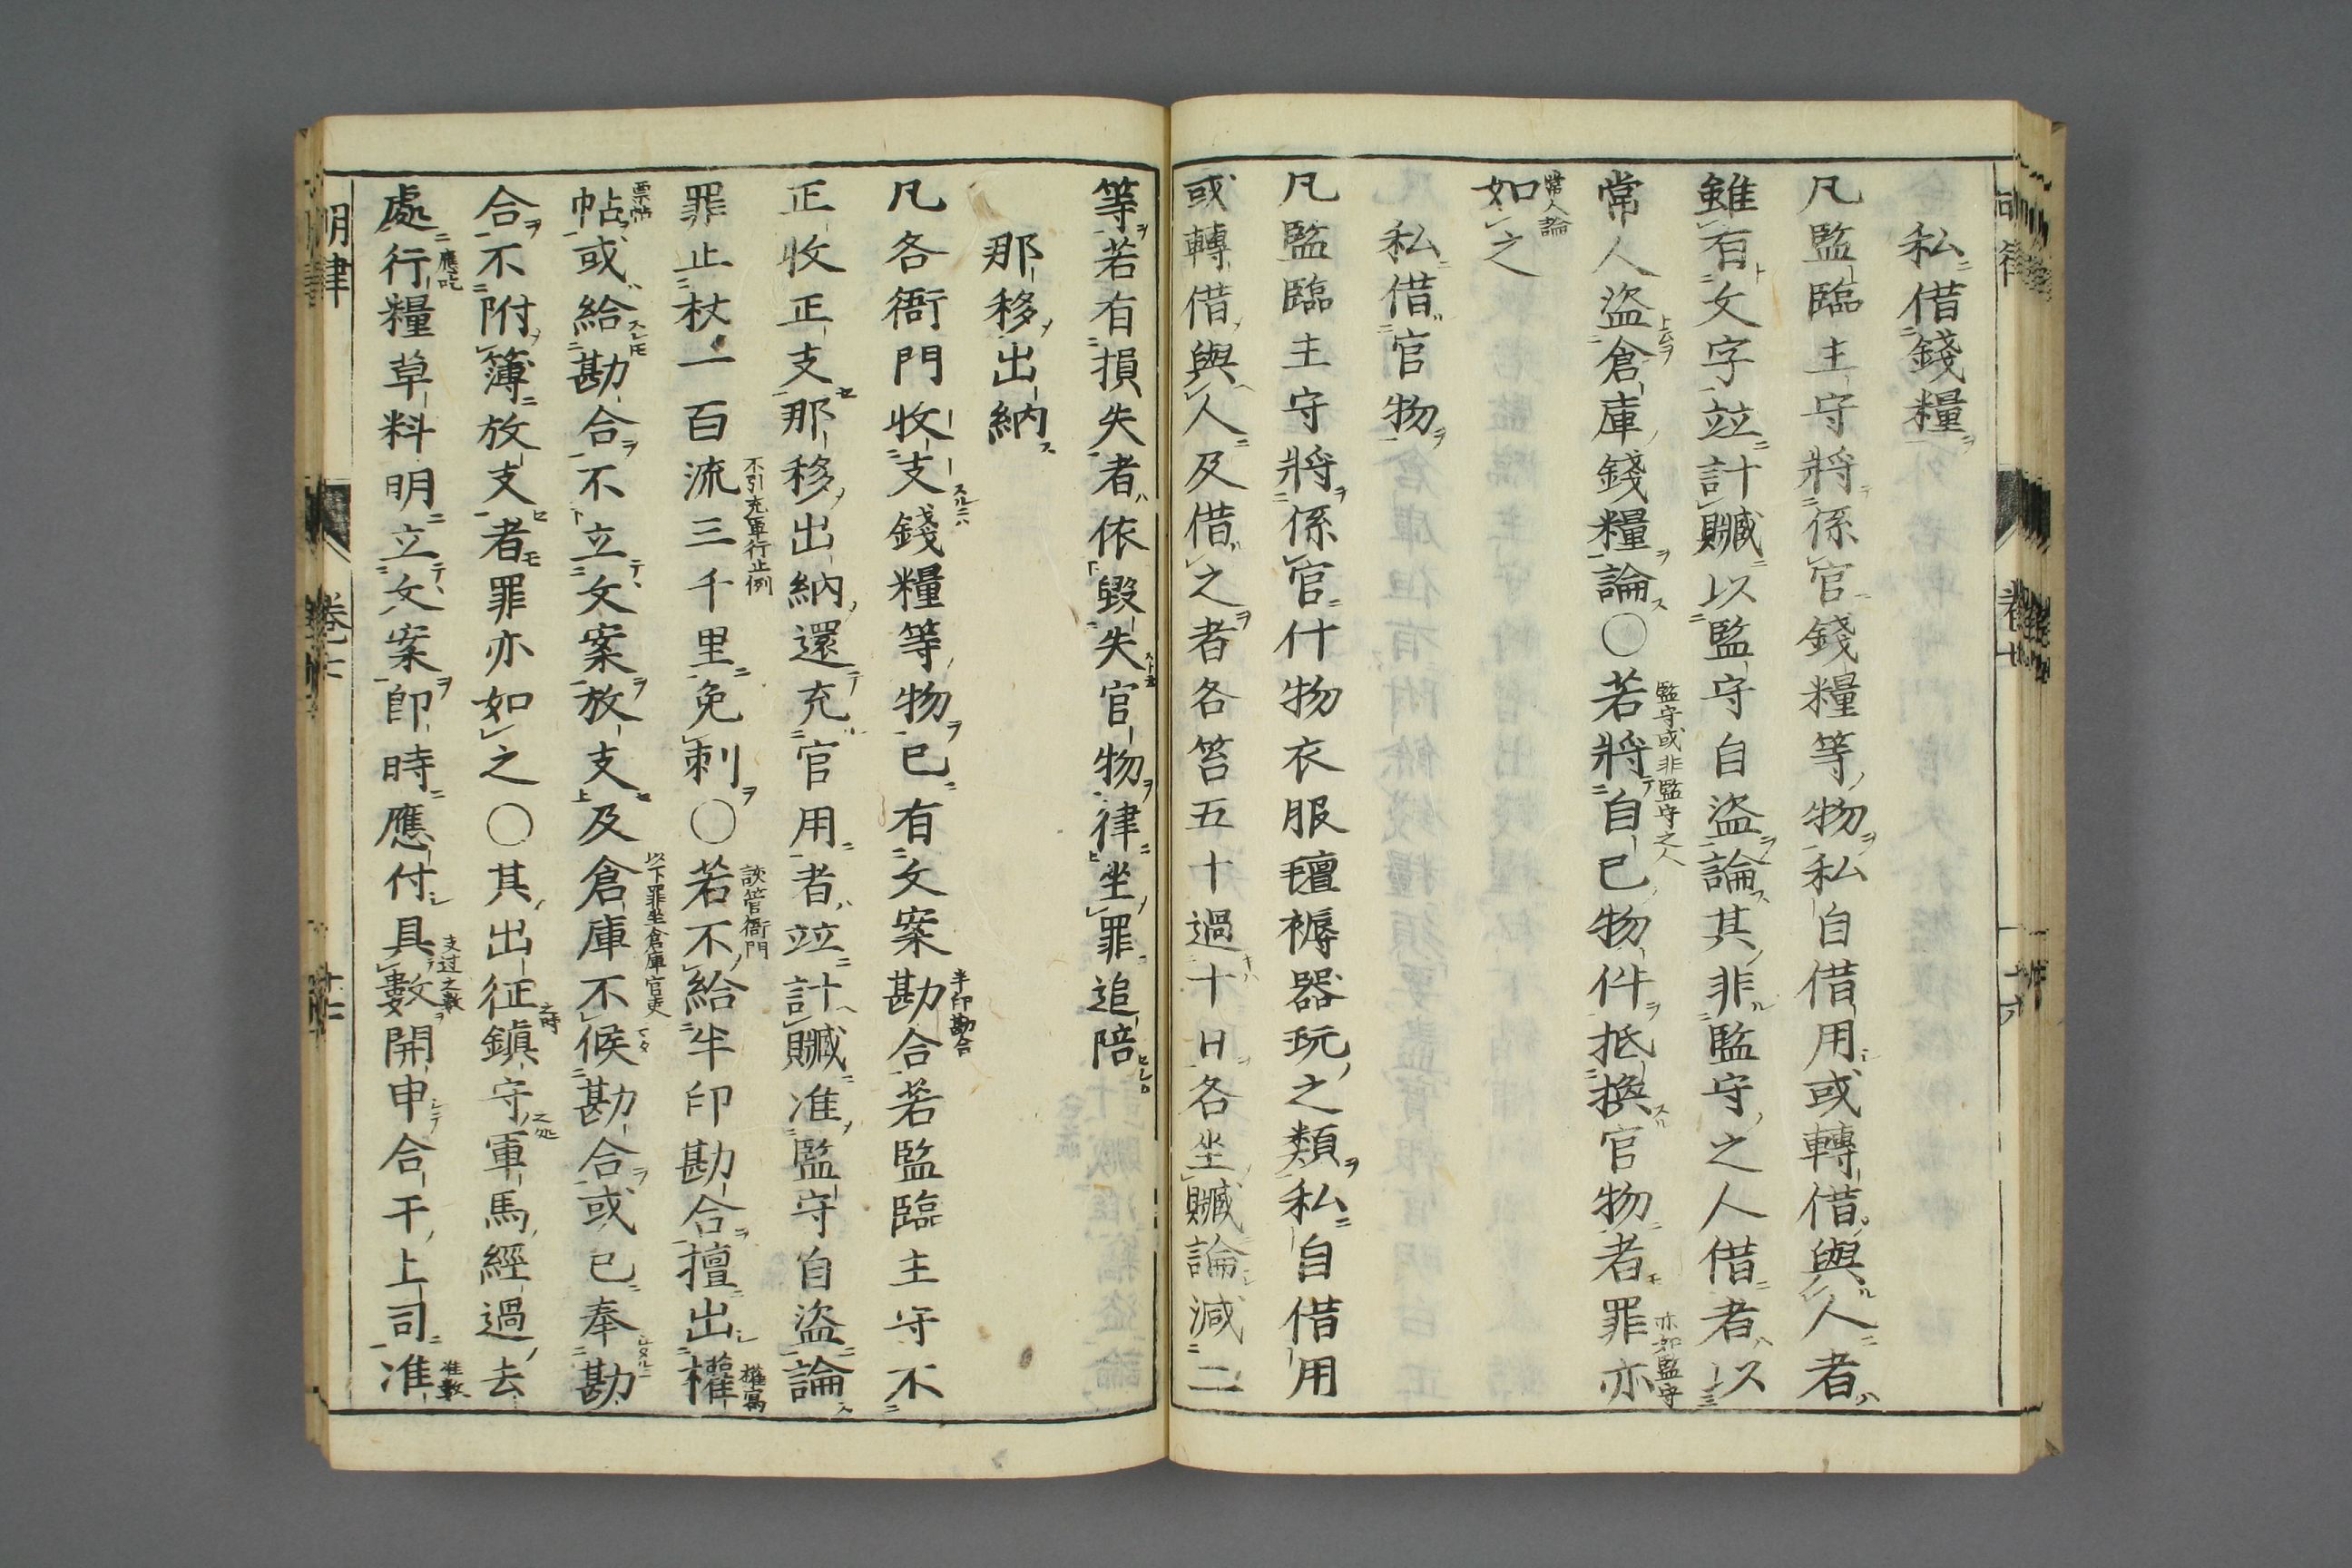 私借錢糧
凡監臨主守將係官錢糧等物私自借用或轉借與人者
雖有文字竝計贓以監守自盜論其非監守之人借者以
常人盜倉庫錢糧論○若將自已物件抵換官物者罪亦
監守或非監守之人
如之
常人論
私借官物
凡監臨主守將係官什物衣服氊褥器玩之類私自借用
或轉借與人及借之者各笞五十過十日各坐贓論減二
等若有損失者依毀失官物律坐罪追陪
那移出納
凡各衙門收支錢糧等物已有文案勘合若監臨主守不
半印勘合
正收正支那移出納還充官用者竝計贓准監守自盜論
罪止杖一百流三千里免刺○若不給半印勘合擅出權
不引充軍行止例
該管衙門
權寫
帖或給勘合不立文案放支及倉庫不候勘合或已奉勘
票帖
以下罪坐倉庫官吏
合不附簿放支者罪亦如之○其出征鎮守軍馬經過去
之時
之處
處行糧草料明立文案即時應付具數開申合干上司准
應吃
支过之數
准數
明律